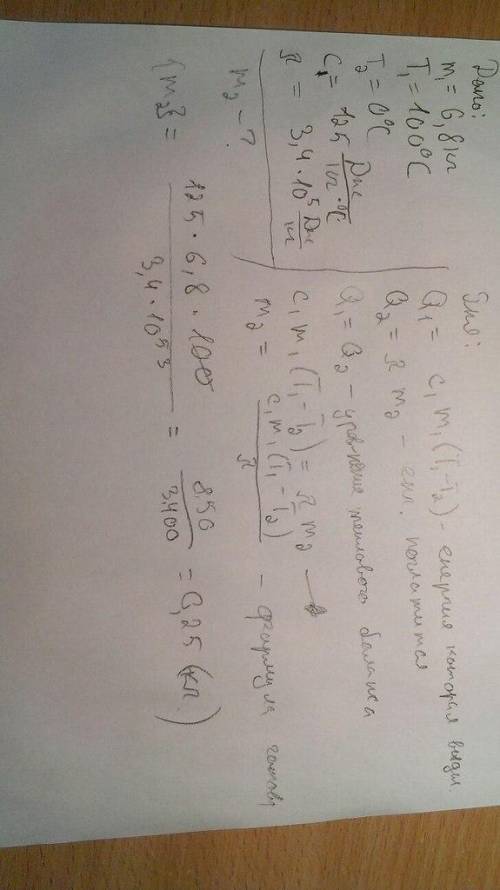 Дано:
m₁ = 6,8 кг
T₁ = 100°C
T₂ = 0°C
C₁ = 125 Дж/кг·°C
λ = 3,4·10⁵ Дж/кг
m₂ – ?
Q₁ = c₁ m₁ (T₁ - T₂) - энергия которая выдел.
Q₂ = λ m₂ - енл. поглатится
Q₁ = Q₂ - уравнение теплового баланса
c₁ m₁ (T₁ - T₂) = λ m₂ →
m₂ = c₁ m₁ (T₁ - T₂) / λ - формула
{m₂} = 125 · 6,8 · 100 / 3,4 · 10⁵ ³ = 850 / 3400 = 0,25 (кг)